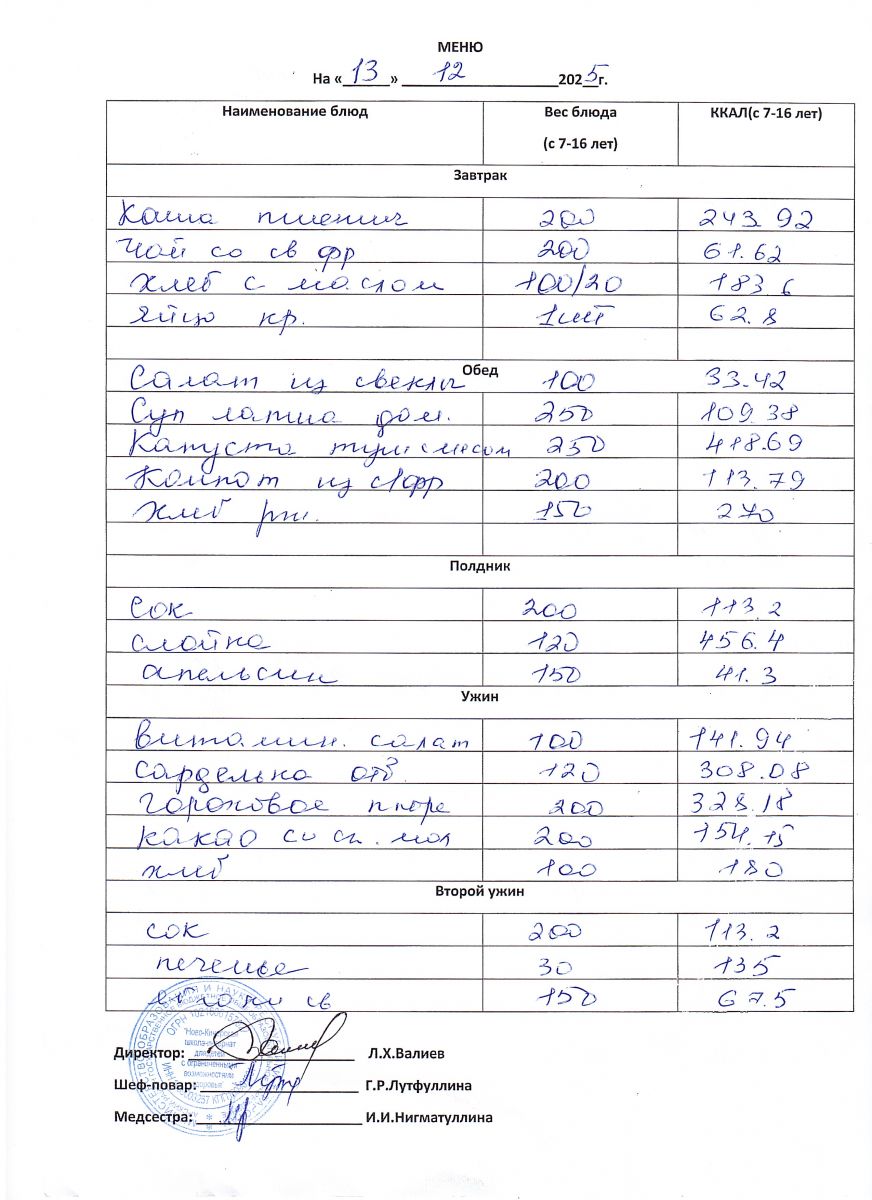 МЕНЮ
На «13» 12 2025г.
Наименование блюд Вес блюда (с 7-16 лет) ККАЛ(с 7-16 лет)
Завтрак
Каша пшенич 200 243.92
Чай со св фр 200 61.62
Хлеб с маслом 100/20 183 6
Яйцо кр. 1шт 62.8
Обед
Салат из свеклы 100 33.42
Суп лапша дом. 250 109.38
Капуста туш с мясом 250 418.69
Компот из с/фр 200 113.79
Хлеб рж. 150 270
Полдник
Сок 200 113.2
слойка 120 456.4
апельсин 150 41.3
Ужин
Витамин. салат 100 141.94
Сарделька отв. 120 308.08
Гороховое пюре 200 328.18
какао со сг. мол 200 154.15
хлеб 100 180
Второй ужин
сок 200 113.2
печенье 30 135
св 150 67.5
Директор: Л.Х.Валиев
Шеф-повар: Г.Р.Лутфуллина
Медсестра: И.И.Нигматуллина